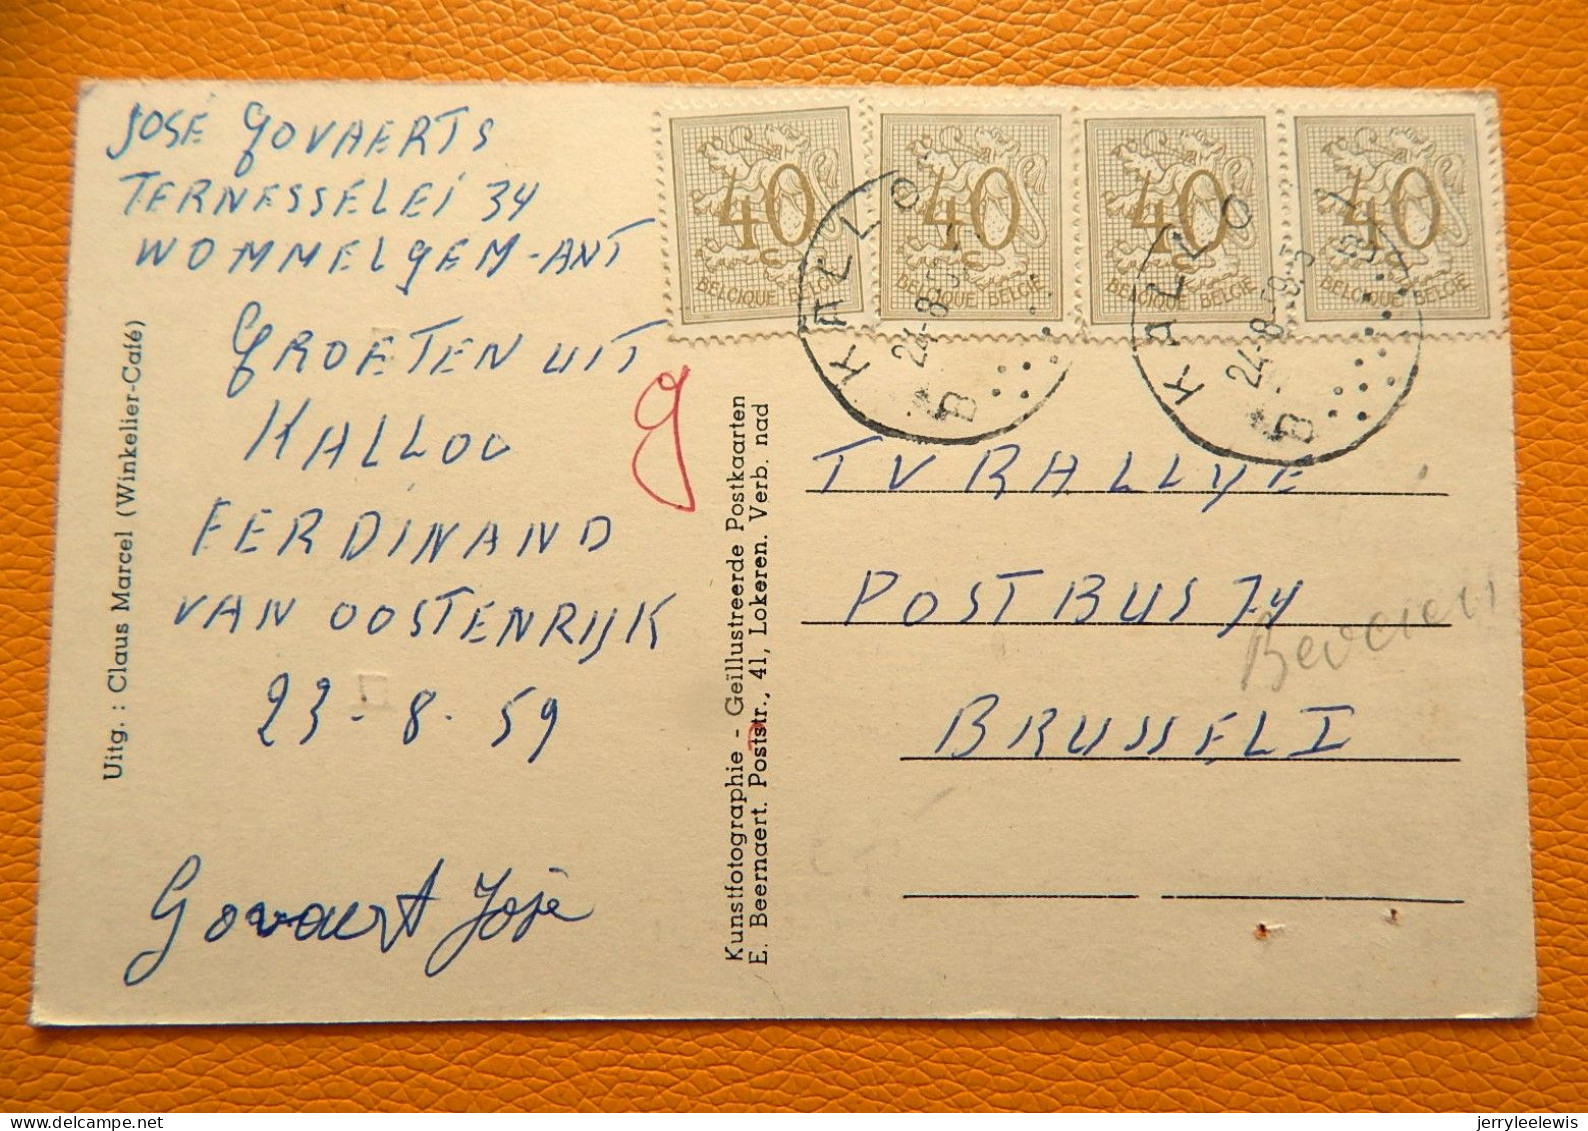 JOSÉ GOVAERTS
TERNESSELEI 34
WOMMELGEM-ANT
GROETEN UIT
KALLOO
FERDINAND
VAN OOSTENRIJK
23-8-59
Govaert José
Uitg. : Claus Marcel (Winkelier-Café)
g
Kunstfotographie - Geïllustreerde Postkaarten
E. Beernaert. Poststr., 41, Lokeren. Verb. nad
40 c
BELGIQUE BELGIË
40 c
BELGIQUE BELGIË
40 c
BELGIQUE BELGIË
40 c
BELGIQUE BELGIË
KALLO
24-8
B
KALLO
24-8
B
TV RALLYE
POSTBUS 74
BRUSSEL I
jerryleelewis